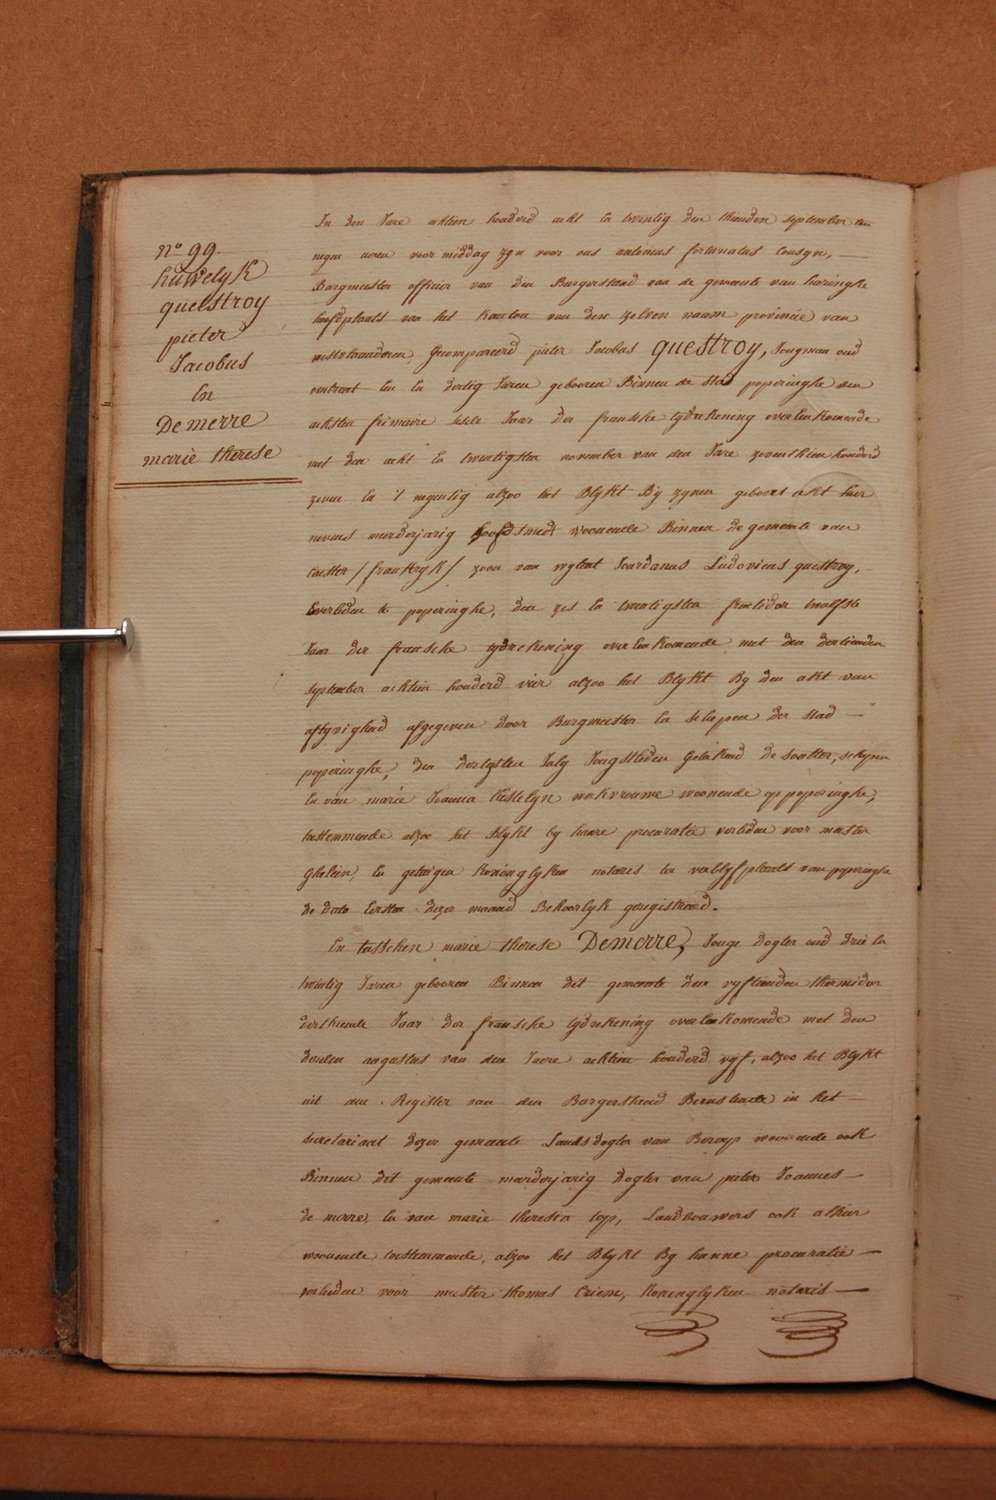 N° 99.
huwelyk
questroy
pieter
Jacobus
En
Demerre
marie therese
In den Jare achtien honderd acht En twintig den thienden september ten
negen uren voor middag zyn voor ons antonius fortunatus Cousyn,
Burgmeester officier van den Burgerstand van de gemeente van haringhe
hoofdplaats van het kanton van den zelven naam provincie van
westvlaanderen, Gecompareerd pieter Jacobus questroy, Jongman oud
omtrent Een En dertig Jaren geboren Binnen de stad poperinghe den
achsten frimaire Jaar der fransche tydrekening over Een komende
met den acht En twintigsten november van den Jare zeventhien honderd
zeven En 't negentig alzoo het Blykt By zynen geboort akt hier
nevens meerderjarig woonende Binnen de gemeente van
Caester / frankryk / zoon van wylent Jordanus Ludovicus questroy,
overleden te poperinghe, den zes En twintigsten fructidor twalfste
Jaar der fransche tydrekening over Een komende met den dertienden
september achtien honderd vier alzoo het Blykt By den akt van
aflyvigheid afgegeven door Burgmeester En schepen der stad
poperinghe, den dertigsten July Jongstleden Geteekend de Sootter, schepen
En van marie Joanna Kestelyn werkvrouwe woonende op poperinghe,
toestemmende alzoo het Blykt by haere procuratie verleden voor meester
Ghelein, En getuigen koninglyken notaris ter verblyfplaats van poperinghe
de dato Eersten dezer maand Behoorlyk geregistreerd.
En tusschen marie therese Demerre, Jonge Dogter oud drie En
twintig Jaren geboren Binnen dit gemeente den vyftienden thermidor
derthiende Jaar der fransche tydrekening over Een komende met den
derden augustus van den Jaere achtien honderd vyf, alzoo het Blykt
uit den Register van den Burgerstand Berustende in het
secretariaat dezer gemeente Landsdogter van Beroep woonende ook
Binnen dit gemeente meerderjarig Dogter van pieter Joannes
de merre, En van marie theresia top, Landbouwers ook alhier
woonende toestemmende, alzoo het Blykt By hunne procuratie
verleden voor meester thomas koninglyken notaris